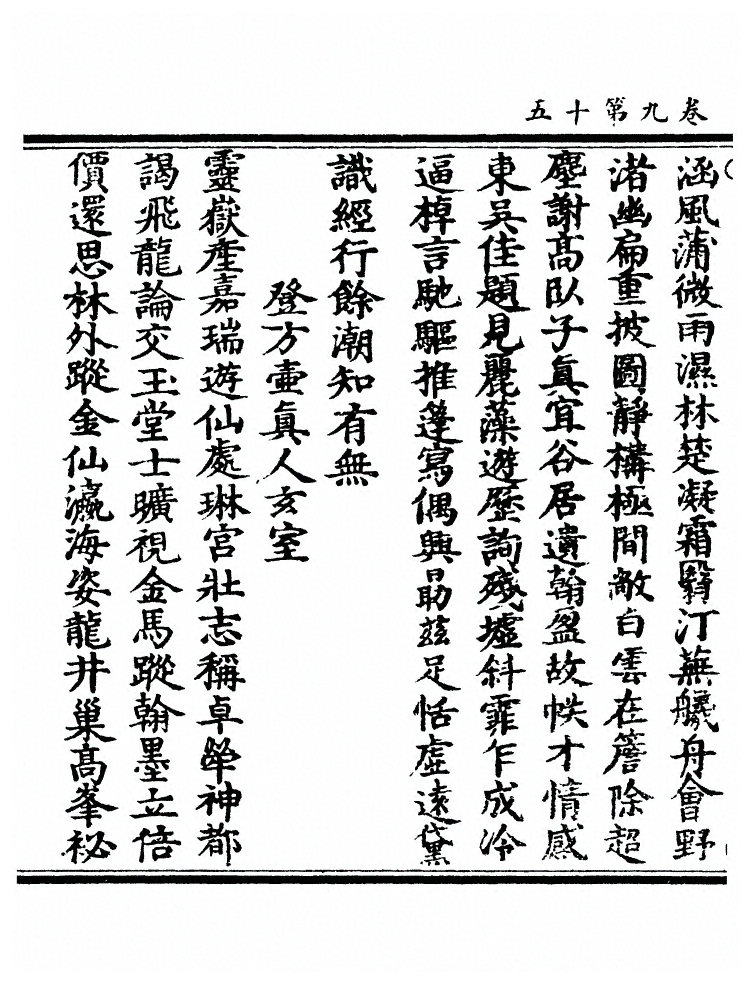 五十第九卷
涵風蒲微雨濕林楚凝霜翳汀蕪艤舟會野
渚幽扁重披圖靜構極閒敞白雲在簷除超
塵謝高臥子真宜谷居遺翰盈故帙才情感
東吳佳題見麗藻遊歷詢殘墟斜霏乍成冷
逼棹言馳驅推篷寫偶興勗茲足恬虛遠黛
識經行餘潮知有無
登方壷真人玄室
靈嶽產嘉瑞遊仙處琳宮壯志稱卓犖神都
謁飛龍論交玉堂士曠視金馬蹤翰墨立倍
價還思林外蹤金仙瀛海姿龍井巢高峯祕